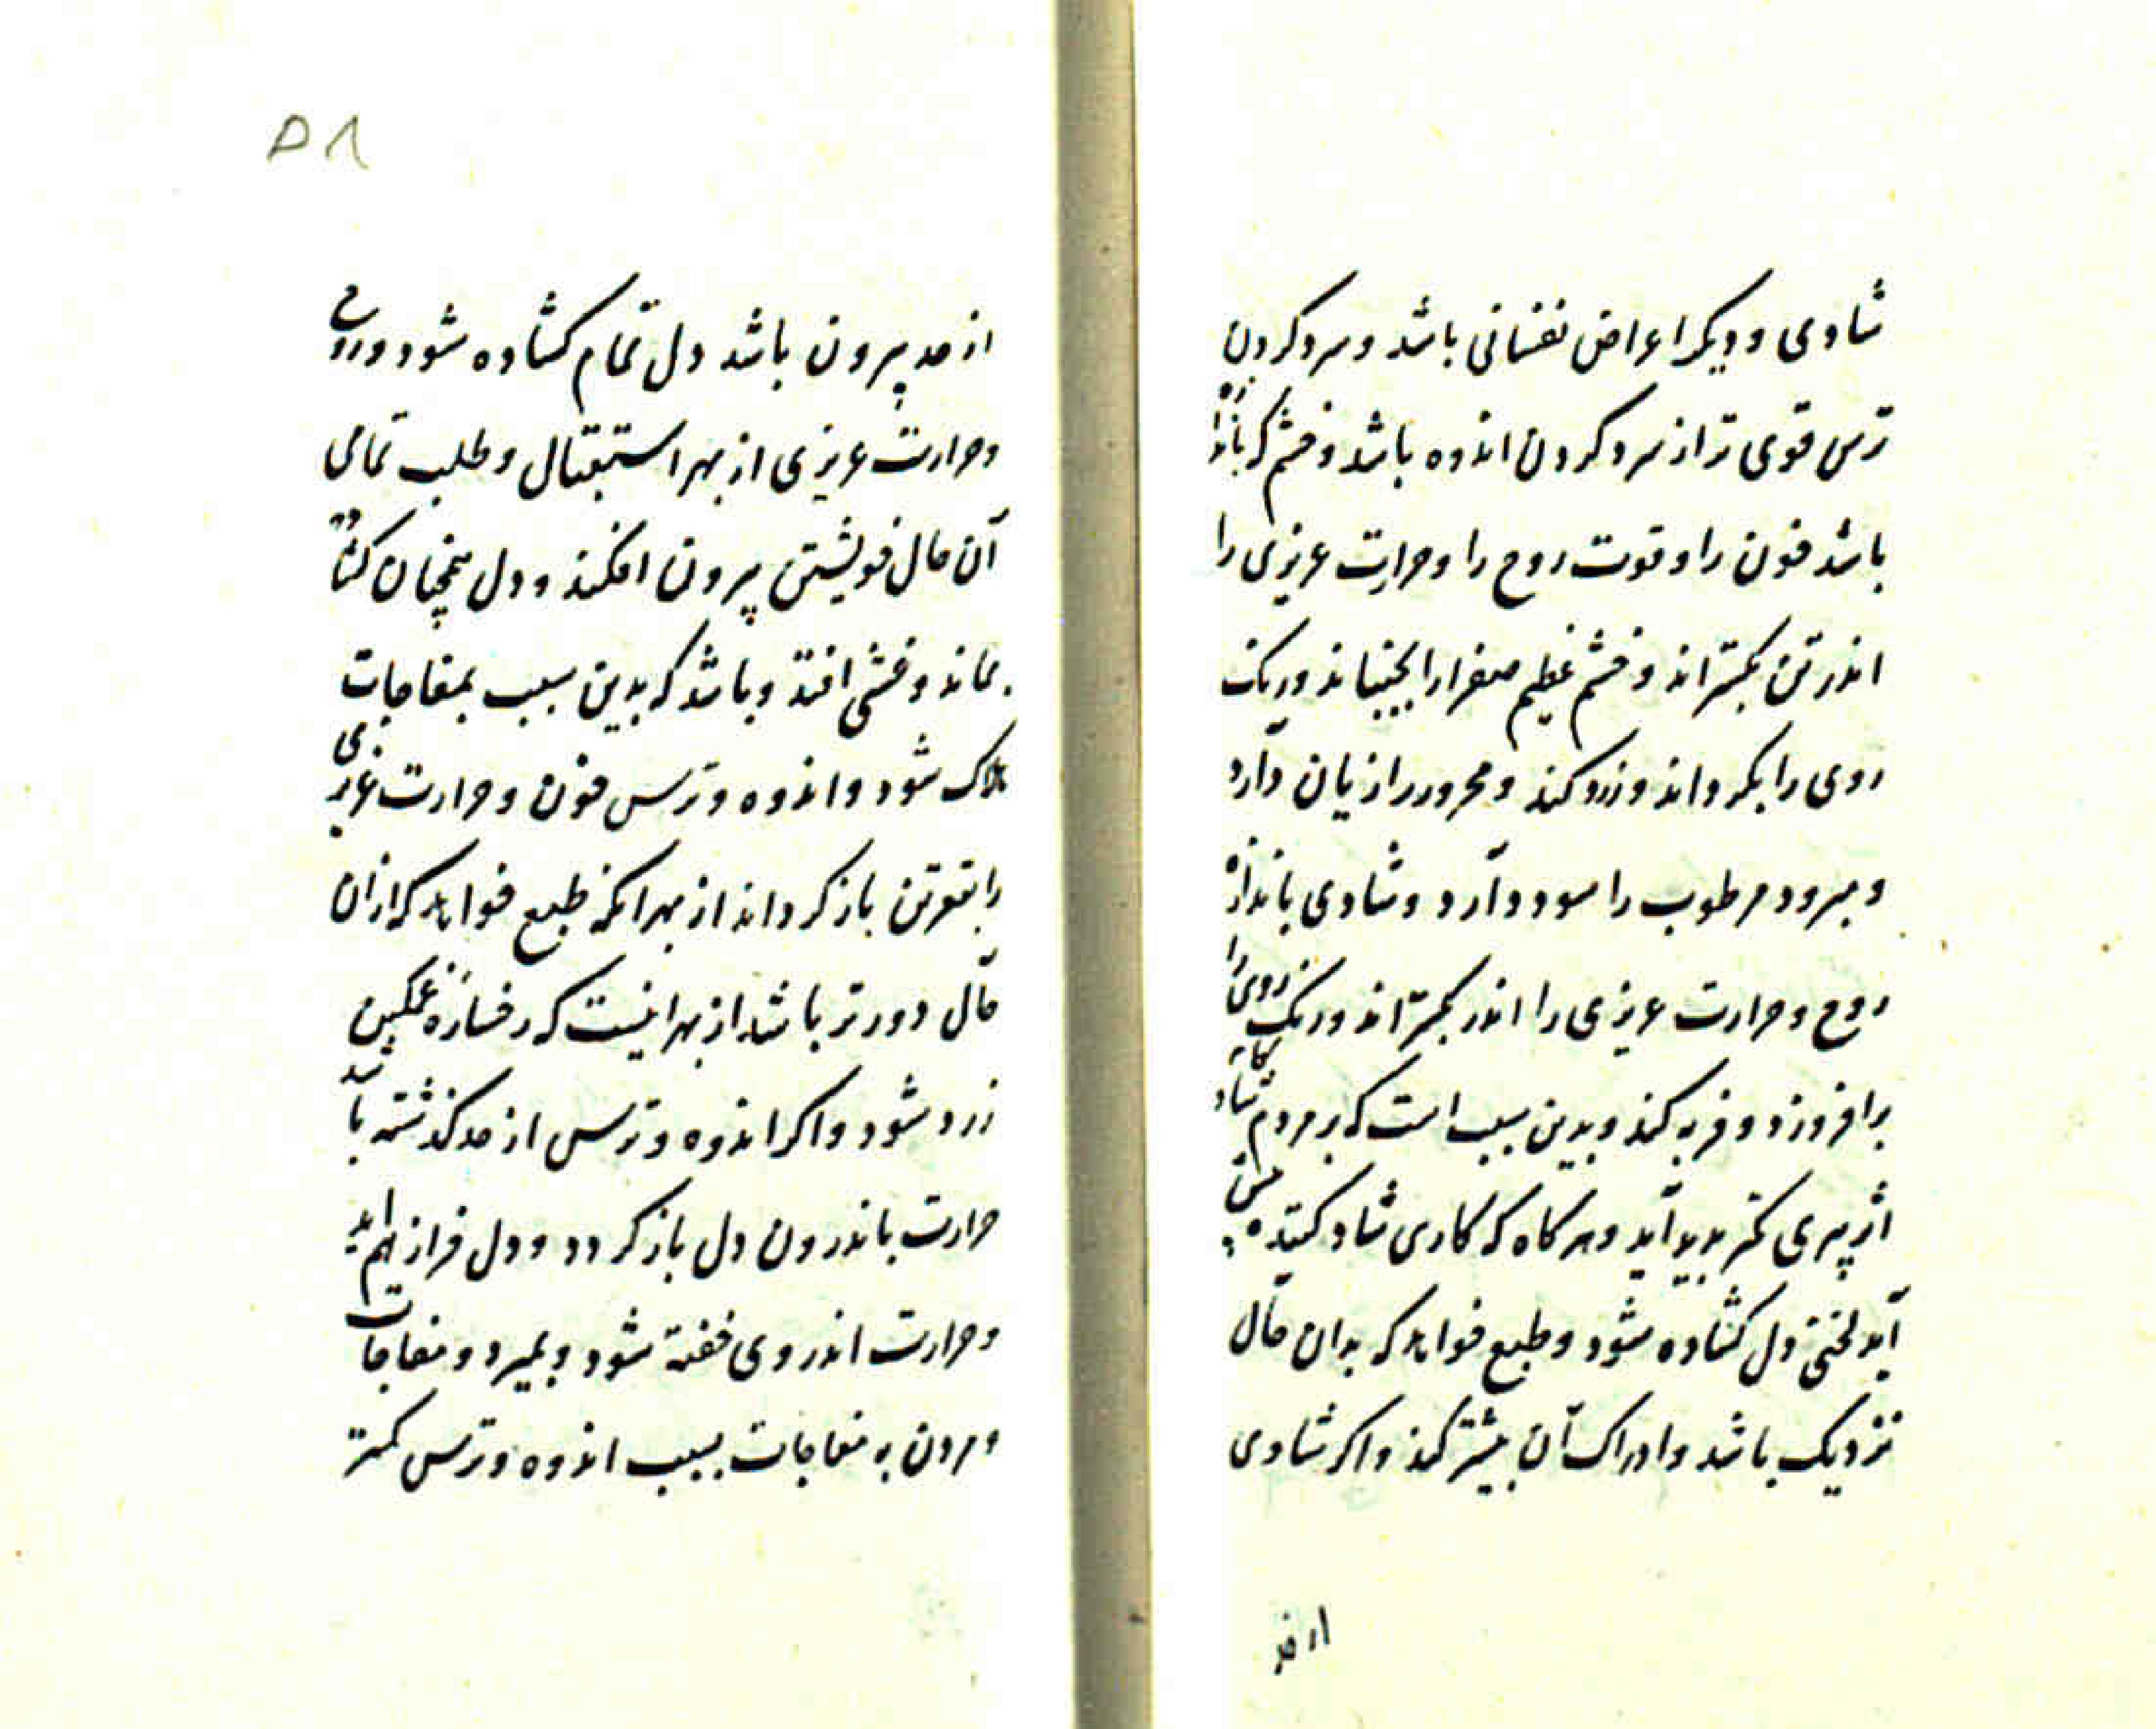 شادی و دیگر اعراض نفسانی باشد و سرد کردن
ترس قوی تر از سرد کردن اندوه باشد و خشم که باندازه
باشد خون را و قوت روح را و حرارت عزیزی را
اندر تن بگستراند و خشم عظیم صفرا را بجنباند و رنک
روی را بگرداند و زرد کند و محرور را زیان دارد
و مبرود مرطوب را سود دارد و شادی باندازه
روح و حرارت عزیزی را اندر بگستراند و رنک روی را
برافروزد و فربه کند و بدین سبب است که بر مردم شادکام
اثر پیری کمتر پدید آید و هرگاه که کاری شاد کننده پیش
آید لختی دل گشاده شود و طبع خواهد که بدان حال
نزدیک باشد و ادراک آن بیشتر کند و اگر شادی
از حد
۵۸
از حد بیرون باشد دل تمام گشاده شود و روح
و حرارت عزیزی از بهر استقبال و طلب تمامی
آن حال خویشتن بیرون افکند و دل همچنان گشاده
بماند و غشی افتد و باشد که بدین سبب بمفاجات
هلاک شود و اندوه و ترس خون و حرارت غریزی
را بقعر تن باز گرداند از بهر انکه طبع خواهد که ازان
حال دورتر باشد از بهر اینست که رخساره غمگین
زرد شود و اگر اندوه و ترس از حد گذشته باشد
حرارت باندرون دل باز گردد و دل فراز هم آید
و حرارت اندر وی خفته شود و بمیرد و مفاجات
و مردن به مفاجات بسبب اندوه و ترس کمتر